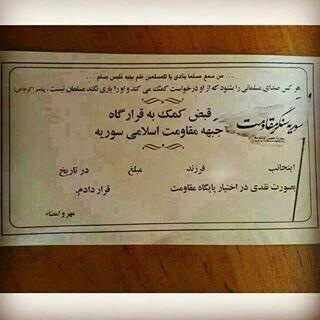 ... من سمع مسلما ینادی یا للمسلمین فلم یجبه فلیس بمسلم ...
هر کس صدای مسلمانی را بشنود که از او درخواست کمک می کند و او را یاری نکند مسلمان نیست. پیامبر اکرم(ص)
قبض کمک به قرارگاه
جبهه مقاومت اسلامی سوریه
سوریه سنگر مقاومت
اینجانب فرزند مبلغ در تاریخ
بصورت نقدی در اختیار پایگاه مقاومت قرار دادم.
مهر و امضاء